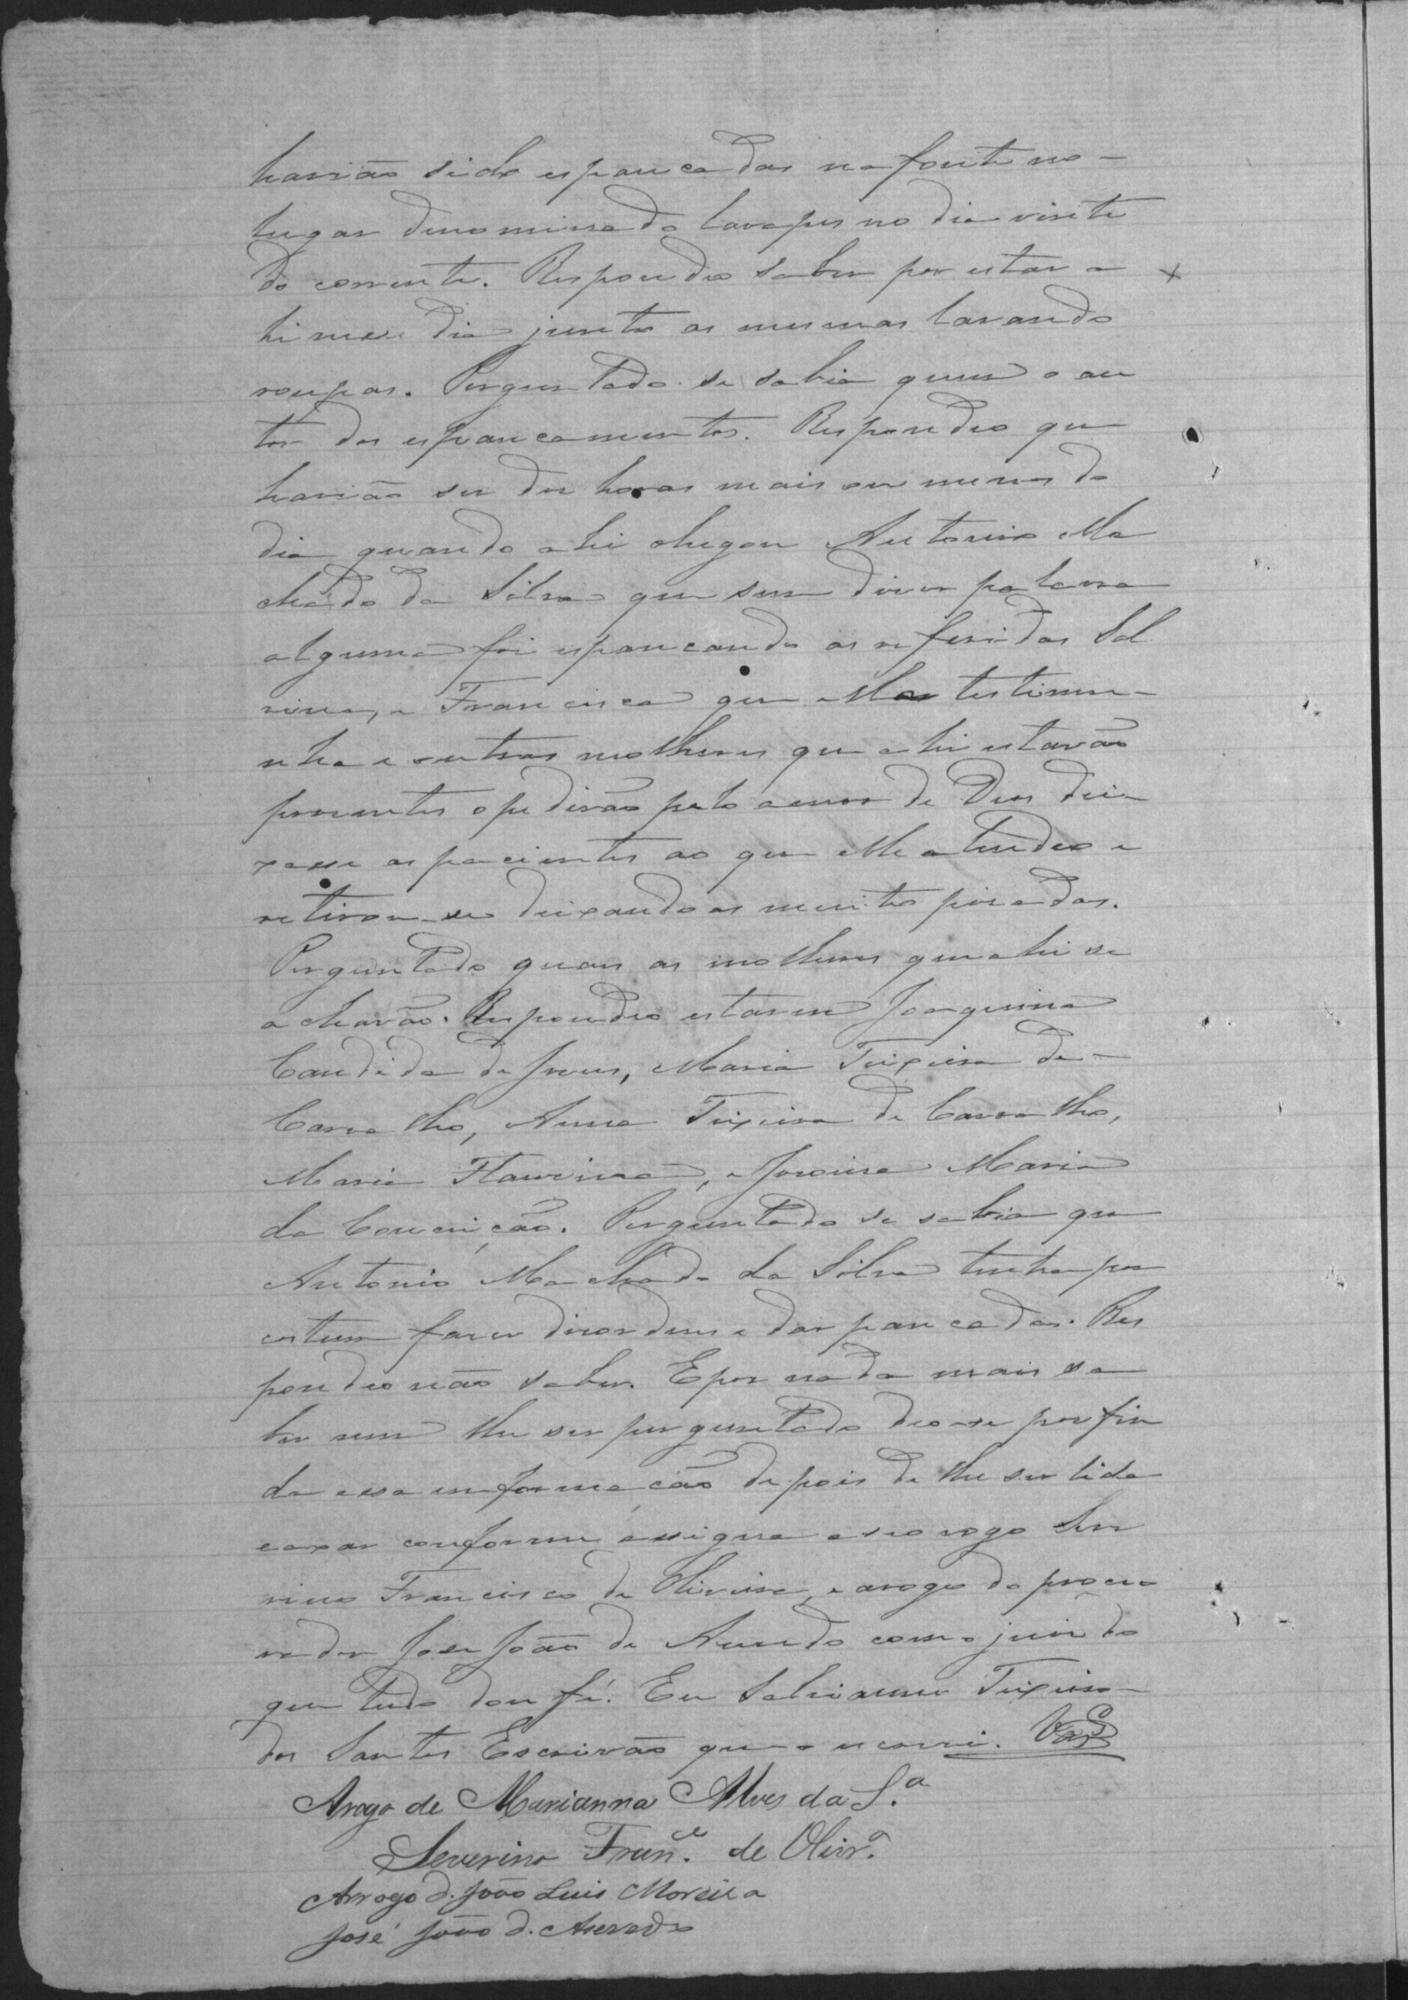 havião sido espancadas na fonte no-
lugar denominado lavapes no dia vinte
do corrente. Respondeo saber por estar a
hi nesse dia junto as mesmas lavando
roupas. Perguntado se sabia quem o au
tor dos espancamentos. Respondeo que
havião ser dez horas mais ou menos do
dia quando ahi chegou Antonio Ma
chado da Silva que sem dizer palavra
alguma foi espancando as referidas Sal
vina, e Francisca que ella testimu-
nha e outras molheres que ahi estavão
presentes o pedirão pelo amor de Deos dei-
xasse as pacientes ao que elle atendeo e
retirou-se deixando as muito pizadas.
Perguntado quaes as molheres que ahi se
achavão. Respondeo estarem Joaquina
Candida de Jesus, Maria Teixeira de-
Carvalho, Anna Teixeira de Carvalho,
Maria Flauzina, e Jovina Maria
da Conceição. Perguntado se sabia que
Antonio Machado da Silva tenha por
costume fazer dizordens e dar pancadas. Res
pondeo não saber. E por nada mais sa
ber nem lhe ser perguntado deo-se por fin
da essa informação depois de lhe ser lida
e axar conforme, assigna a seo rogo Seve
rino Francisco de Oliveira, e arogo do procu
rador José João de Azevedo com o juiz do
que tudo dou fé. Eu Salvianno Teixeira
dos Santos Escrivão que o escrevi.
Arogo de Marianna Alves da S.ª
Severino Fran.co de Olivr.ª
Arrogo d. João Luis Moreira
José João d. Azevedo